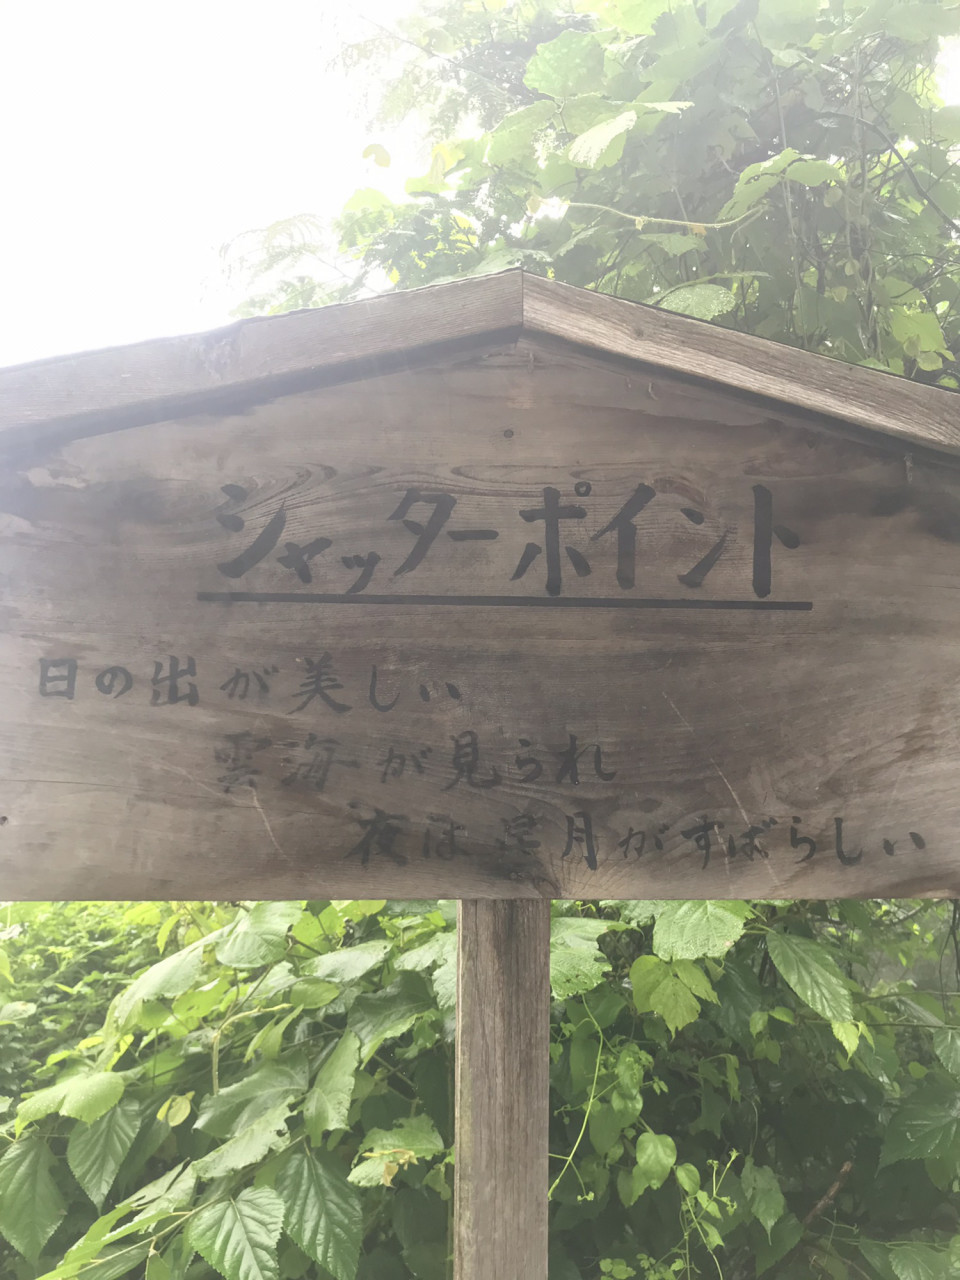 シャッターポイント
日の出が美しい
雲海が見られ
夜は星月がすばらしい